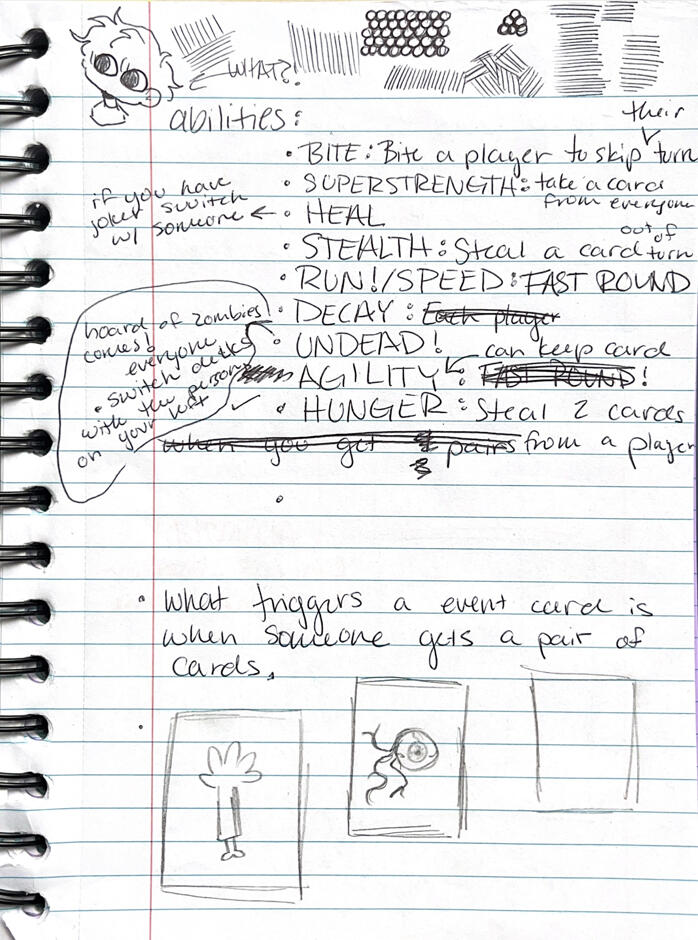 WHAT?!
abilities:
their
• BITE: Bite a player to skip turn
• SUPERSTRENGTH: take a card
from everyone
if you have
joker switch
w/ someone ← • HEAL
out of
• STEALTH: Steal a card turn
• RUN!/SPEED: FAST ROUND
• DECAY: Each player
hoard of zombies!
comes!
everyone
• switch decks
with the person
on your left
• UNDEAD!
can keep card
AGILITY: FAST ROUND!
• HUNGER: Steal 2 cards
when you get pairs from a player
• What triggers a event card is
when someone gets a pair of
cards.